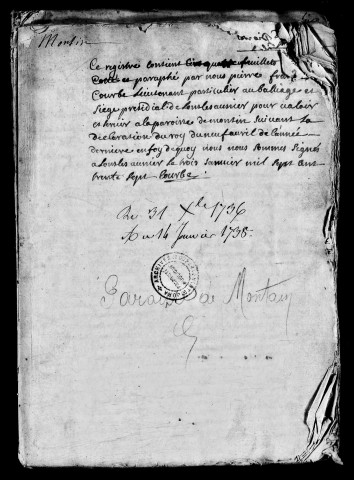 Montin
Ce registre contient Cinquante feuillets
Cotté et paraphé par nous pierre franç
Courbe Lieutenant particulier au balliage et
Siege presidial de Lonslesaunier pour valoir
et servir a la paroisse de montin suivant la
declaration du roy du neuf avril de l'année
derniere en foy de quoy nous nous sommes signés
a Lonslesaunier le trois Janvier mil sept cent
trente sept Courbe
De 31 Xbre 1736
Au 14 Janvier 1738
Paroisse de Montain